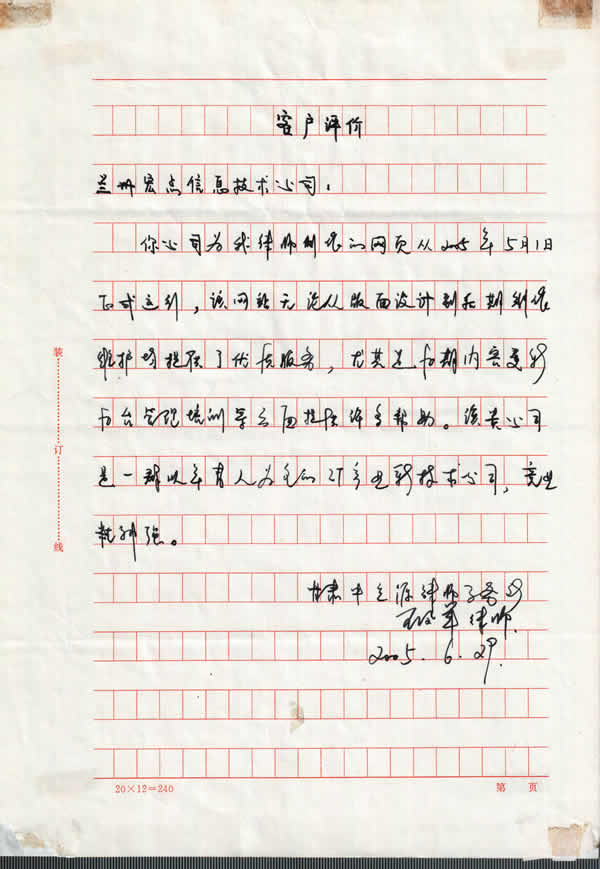 客户评价
兰州宏点信息技术公司：
你公司为我律师制作的网页从2005年5月1日
正式运行，该网站无论从版面设计到后期制作
维护均提供了优质服务，尤其是后期内容更新
后台管理培训等方面提供许多帮助。该贵公司
是一群以年青人为主的IT专业新技术公司，专业
精神强。
甘肃中立源律师事务所
律师
2005.6.29
装
订
线
20×12=240
第 页